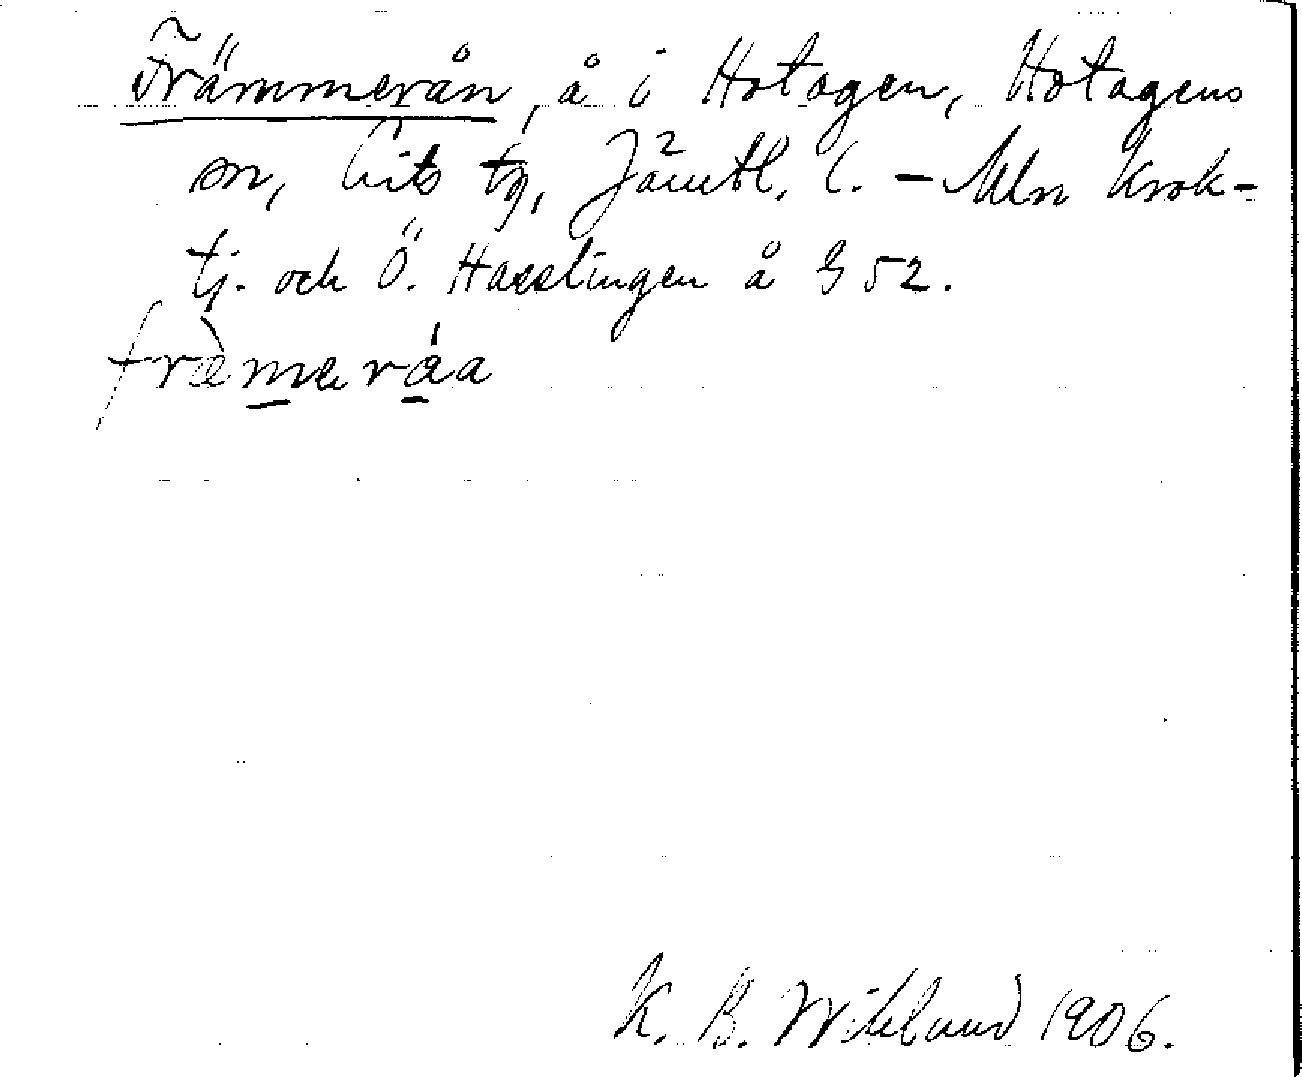 Främmerån, å i Hotagen, Hotagens
sn, Lits tg, Jämtl. l. – Mln Krok-
tj. och Ö. Hasslingen å G 52.
fremeråa
K. B. Wiklund 1906.